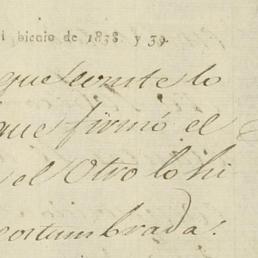 i bienio de 1838. y 39.
que conste lo
que firmó el
el otro lo hi
costumbrada.